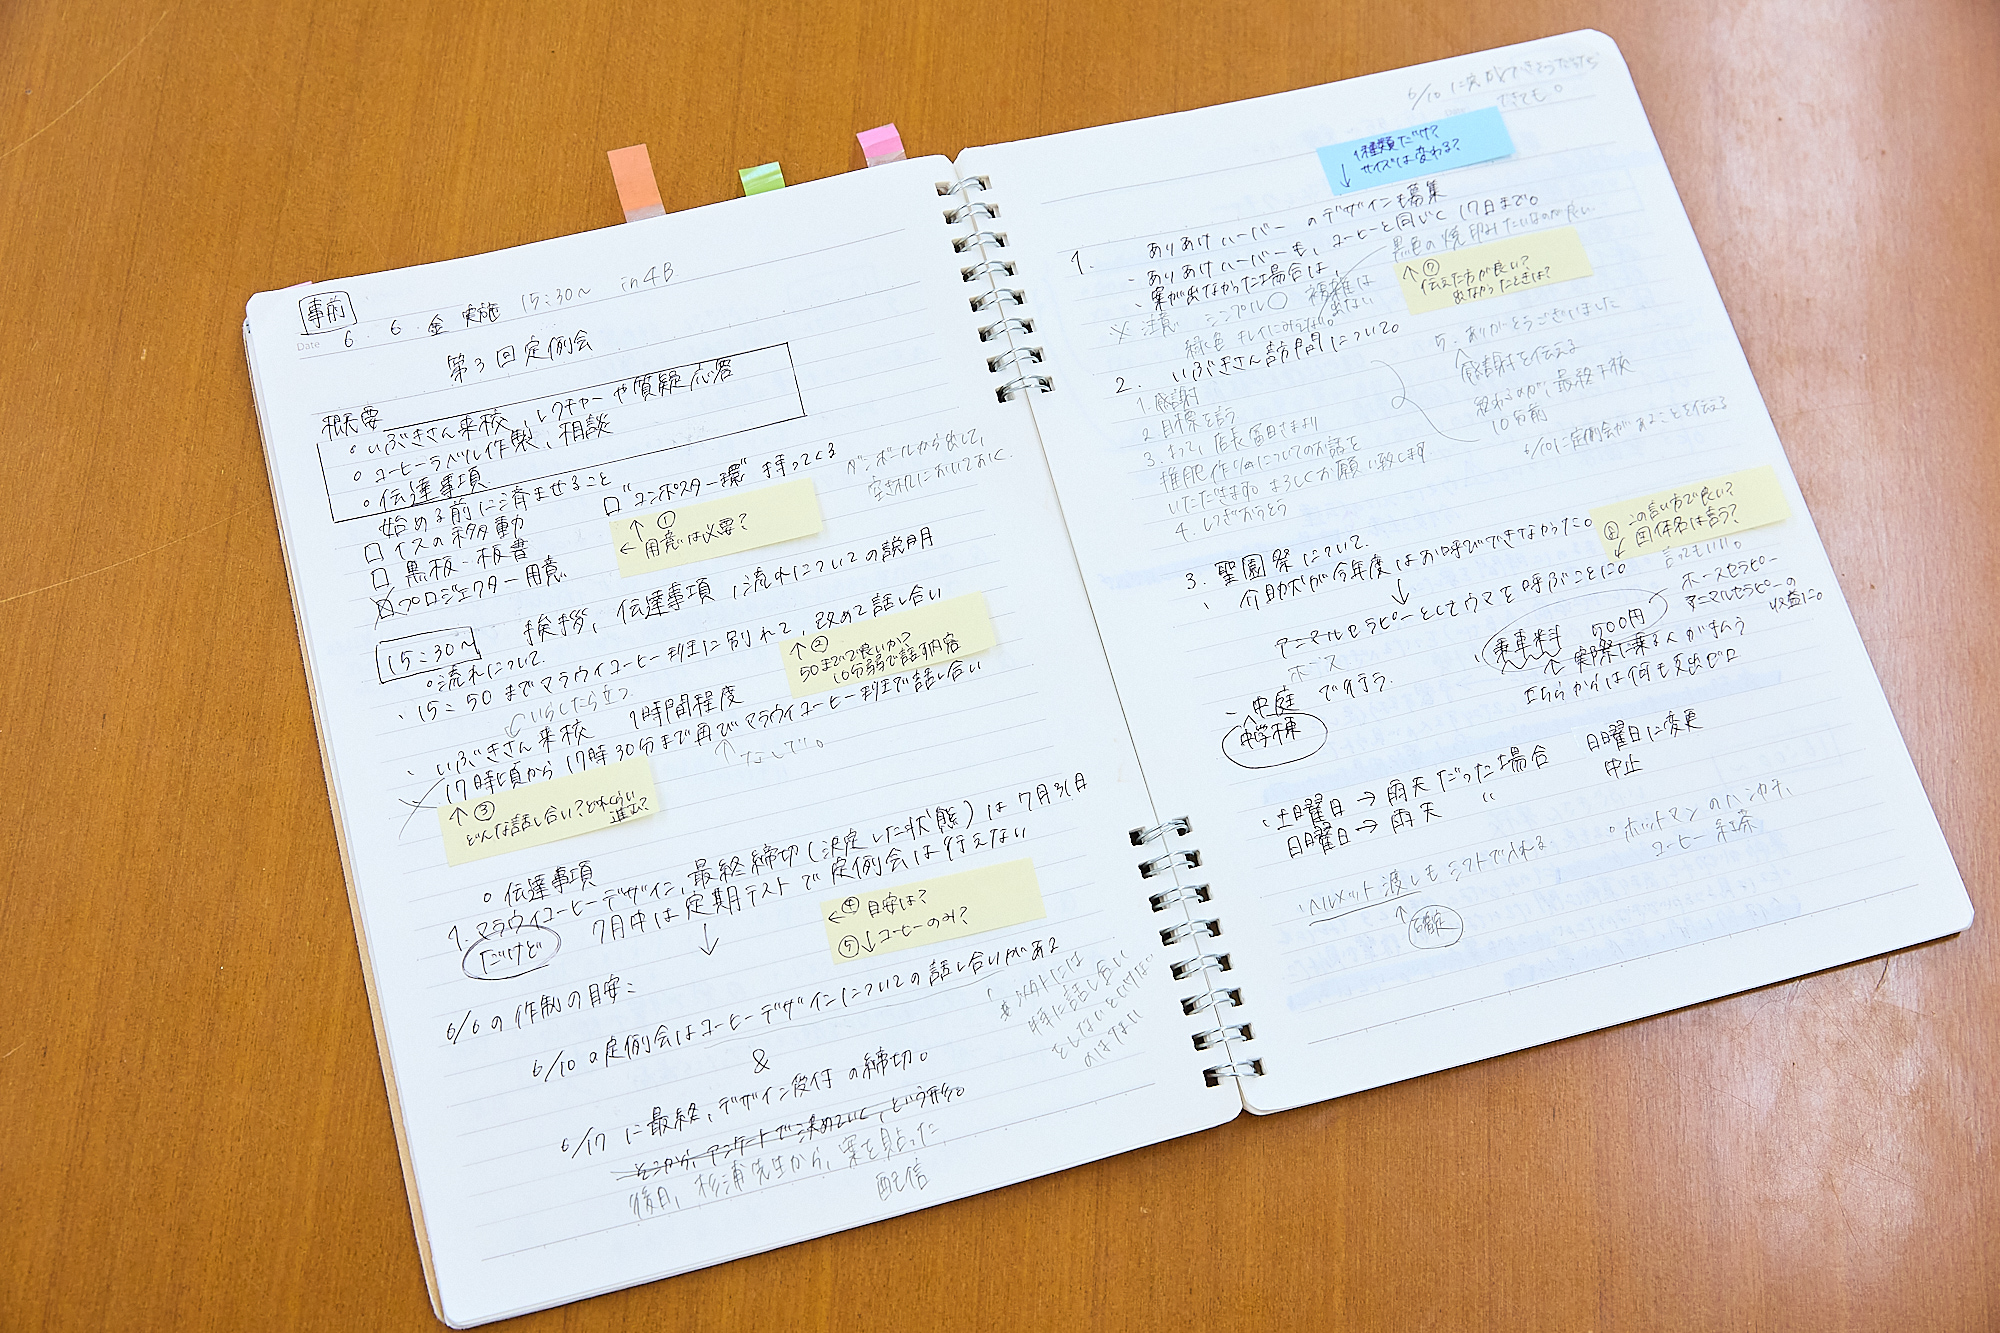 事前
Date 6 . 6 . 金 実施 15:30〜 in 4B
第3回定例会
概要
○ いぶきさん来校、レクチャーや質疑応答
○ コーヒーラベル作製、相談
○ 伝達事項
始める前に済ませること
□ イスの移動
□ "コンポスター環" 持ってくる
ダンボールから出して、
空き机においておく。
□ 黒板・板書
□ プロジェクター用意
↑ ①
← 用意は必要?
15:30〜
挨拶、伝達事項、流れについての説明
○ 流れについて
・15:50までマラウイコーヒー班に別れて、改めて話し合い
↑ ②
50までで良いか?
10分弱で話す内容
いらしたら立つ。
・いぶきさん来校 1時間程度
17時頃から17時30分まで再びマラウイコーヒー班で話し合い
↑ なしで。
↑ ③
どんな話し合い?どれくらい
進む?
○ 伝達事項
1. マラウイコーヒーデザイン、最終締切(決定した状態)は7月31日
だけど
7月中は定期テストで定例会は行えない
↓
← ④ 目安は?
⑤ ↓ コーヒーのみ?
6/6の作制の目安:
6/10の定例会はコーヒーデザインについての話し合いがある
以外には
特に話し合い
としないといけない
のはない
&
6/17に最終、デザイン受付の締切。
そこから、アンケートで決めていく、という形。
後日、杉浦先生から、案を貼った
配信
6/10に
できても。
1種類だけ?
↓ サイズは変わる?
1. ありあけハーバーのデザインも募集
・ありあけハーバーも、コーヒーと同じく17日まで。
・案が出なかった場合は、
黒色の焼印みたいなのが良い
↑ ⑦
伝えた方が良い?
出なかったときは?
※注意 シンプル○ 複雑は
出ない
緑色 キレイにみえない。
2. いぶきさん訪問について。
1. 感謝
2. 目標を言う
3. よって、店長 冨田さまより
堆肥作りめについてのお話を
いただきます。よろしくお願い致します。
4. レクざおうとう
5. ありがとうございました
↑ 感謝を伝える
終わるのが、最終下校
10分前
6/10に定例会があることを伝える
3. 聖園祭について。
⑥ この言い方で良い?
↓ 団体名は言う?
言ってもいい。
・介助犬が今年度はお呼びできなかった。
↓
アニマルセラピーとしてウマを呼ぶことに。
ホース
ホースセラピー
アニマルセラピーの
収益に。
・乗車料 500円
↑ 実際に乗る人が払う
こちらからは何も支出ゼロ
・中庭で行う。
中学棟
・土曜日→雨天だった場合 日曜日に変更
日曜日→雨天 〃 中止
・ヘルメット渡しもシフトで入れる
↑
確定
○ ホットマンのハンカチ、
コーヒー 紅茶